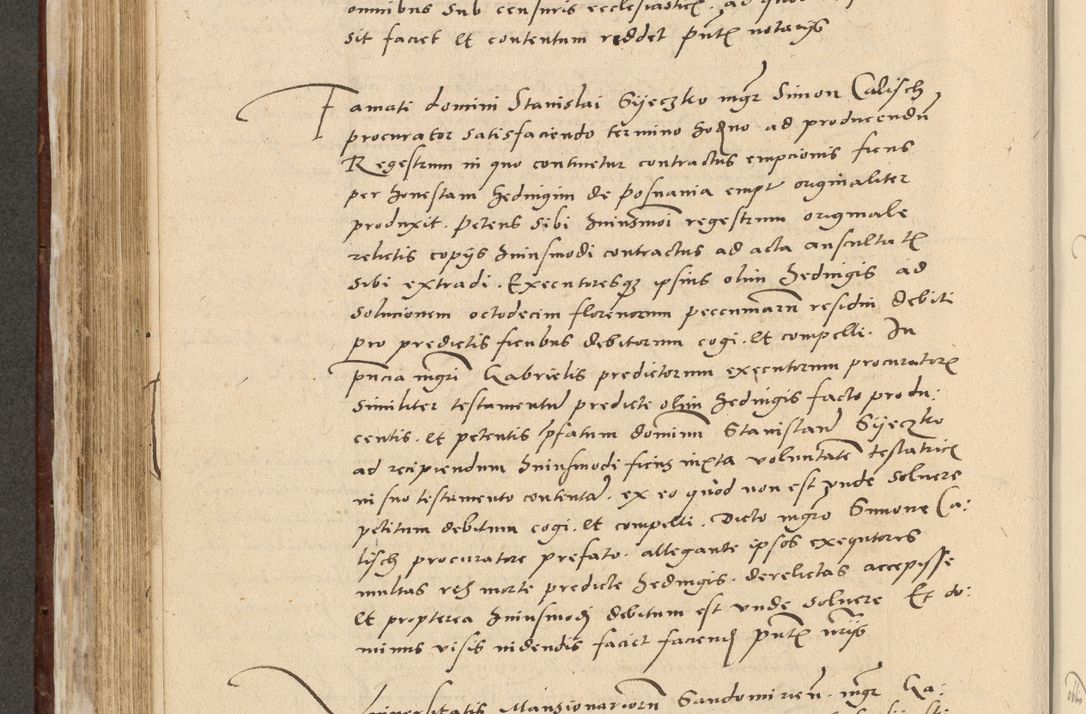 omnibus sub censuris ecclesiasticis. ad
sit faciet Et contentum reddet Pntᷓ notarijs
Famati domini Stanislai Gijeczko mgr Simon Calisch
procurator satisfaciendo termino hodno ad producendū
Regestrum in quo continetur contractus empcionis ficus
per honestam Hedvigim de Posnania empt originaliter
produxit. Petens sibi huiusmoi regestrum originale
relictis copijs huiusmodi contractus ad acta auscultatis
sibi extradi. Executoresq ipsius olim Hedvigis ad
solucionem octodecim florenorum pecuniarū residui debiti
pro predictis ficubus debitorum cogi. Et compelli. In
pncia mgri Gabrielis predictorum executorum procuratoris
similiter testamentū predicte olim Hedvigis facto produ:
centis. et petentis pfatum dominum Stanislaū Gijeczko
ad recipiendum huiusmodi ficus iuxta voluntatē testatricis
in suo testamento contentā. ex eo quod non est unde soluere
petitum debitum cogi. Et compelli. Dicto mgro Simone Ca:
lisch procuratore prefato. allegante ipsos exequtores
multas res morte predicte Hedvigis. derelictas accepisse
Et propterea huiusmodi debitum est unde soluere Et do:
minus visis videndis faciet faciend pntᷓ nrijs
Universitatis Mansionariorū Sandomirien. mgr Ga: